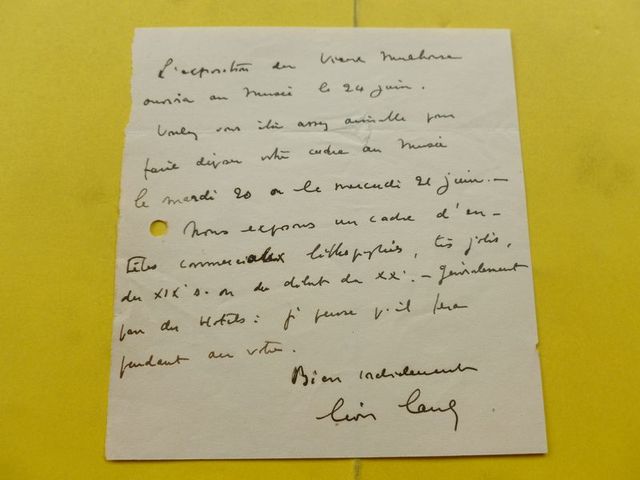 L'exposition du Vieux Mulhouse
ouvrira au Musée le 24 juin.
Voulez vous être assez aimable pour
faire déposer votre cadre au Musée
le mardi 20 ou le mercredi 21 juin. —
Nous exposons un cadre d'en-
têtes commerciales lithographiés, très jolis,
du XIXe s. ou du début du XXe. — Généralement
par des Hotels : je pense qu'il fera
pendant au votre.
Bien cordialement
Léon Lang